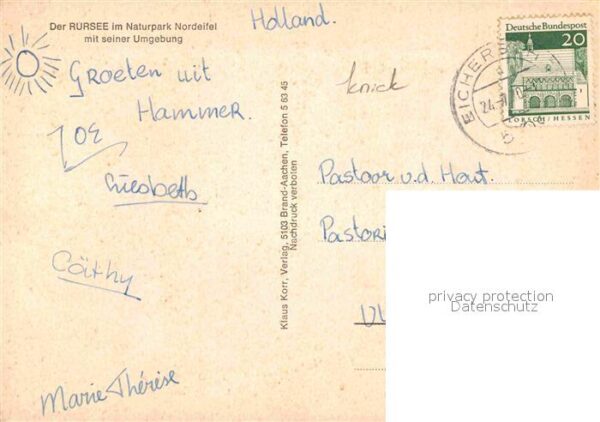 Der RURSEE im Naturpark Nordeifel
mit seiner Umgebung
Holland.
Groeten uit
Hammer.
Liesbeth
Cäthy
Marie Thérèse
knick
Klaus Korr, Verlag, 5103 Brand-Aachen, Telefon 5 63 45
Nachdruck verboten
Deutsche Bundespost
20
LORSCH/HESSEN
EICHER
24.
Pastoor v.d. Hout.
Pastori
privacy protection
Datenschutz